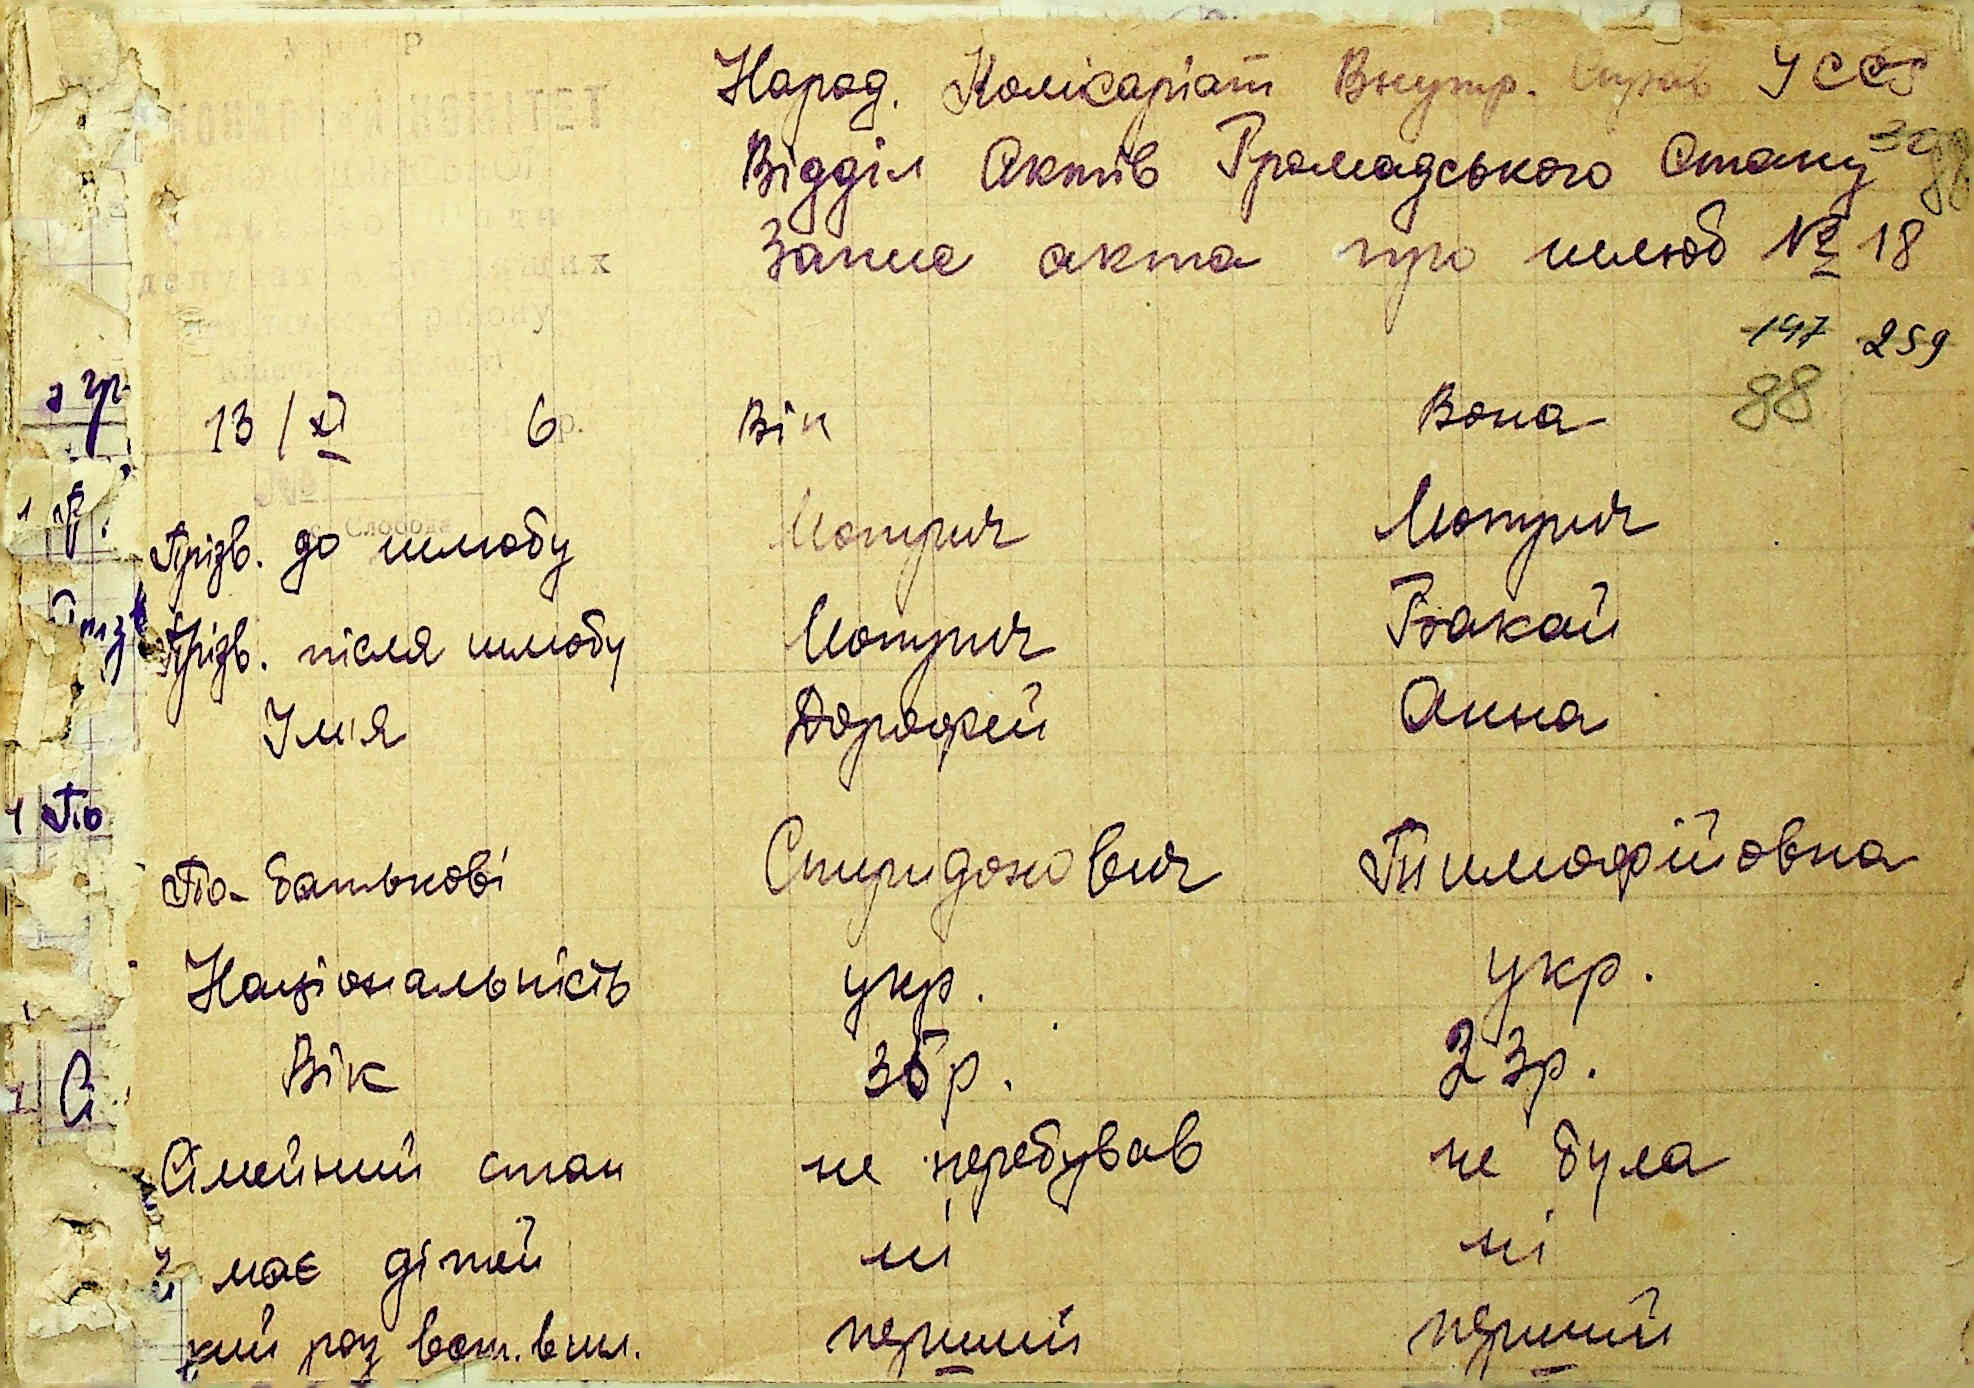 Народ. Комісаріят Внутр. Справ УССР
Відділ Актів Громадського Стану
Запис акта про шлюб № 18
147 259
88
13/XI 6 р. Він Вона
Слобода
Прізв. до шлюбу Мотрич Мотрич
Прізв. після шлюбу Мотрич Бакай
Ім'я Дорофей Анна
По-батькові Спиридонович Тимофійовна
Національність укр. укр.
Вік 35р. 23р.
Сімейний стан не перебував не була
має дітей ні ні
кий раз вст. в шл. перший перший